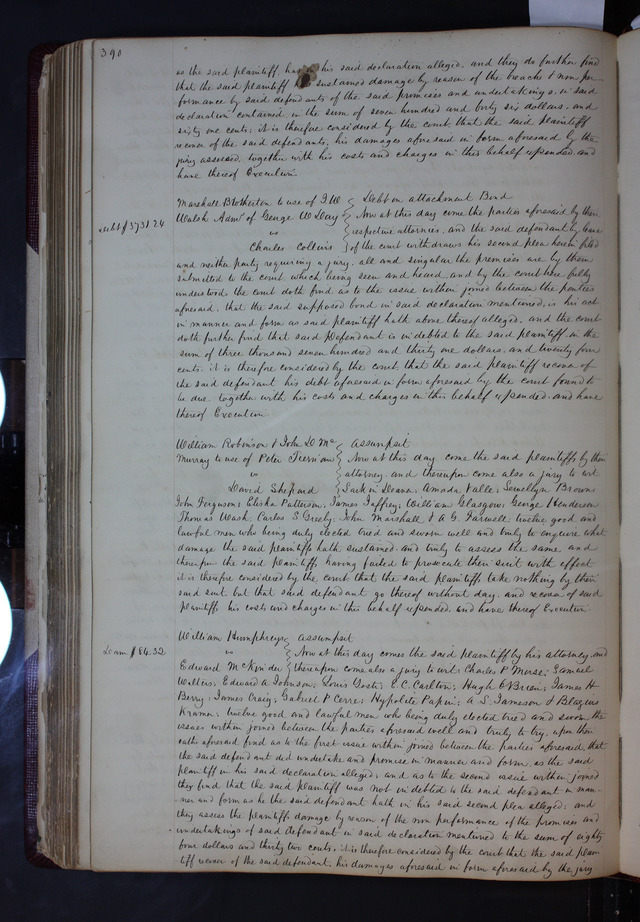 390
as the said plaintiff hath in his said declaration alleged, and they do further find
that the said plaintiff hath sustained damage by reason of the breaches & non per-
formance by said defendants of the said promises and undertakings, in said
declaration contained in the sum of seven hundred and forty six dollars, and
sixty one cents; it is therefore considered by the court that the said plaintiff
recover of the said defendants, his damages aforesaid in form aforesaid by the
jury assessed, together with his costs and charges in this behalf expended, and
have thereof Execution.
Marshall Brotherton to use of J W } Debt on attachment Bond
debt $3731.24
Walsh Admr of George W Day } Now at this day come the parties aforesaid by their
vs } respective attornies, and the said defendant by leave
Charles Collins } of the court withdraws his second plea herein filed
and neither party requiring a jury, all and singular the premises are by them
submitted to the court which being seen and heard, and by the court here fully
understood, the court doth find as to the issue within joined between the parties
aforesaid, that the said supposed bond in said declaration mentioned, is his act
in manner and form as said plaintiff hath above thereof alleged, and the court
doth further find that said Defendant is indebted to the said plaintiff, in the
sum of three thousand seven hundred and thirty one dollars, and twenty four
cents; it is therefore considered by the court, that the said plaintiff recover of
the said defendant his debt aforesaid in form aforesaid by the court found to
be due together with his costs and charges in this behalf expended, and have
thereof Execution
William Robinson & John D Mc } Assumpsit
Murray to use of Peter Tiernan } Now at this day come the said plaintiffs by their
vs } attorney, and thereupon come also a jury to wit
David Shepard } Jackin Deane; Amada Valle; Lewellyn Brown;
John Ferguson; Elisha Patterson; James Jaffrey; William Glasgow; George Henderson
Thomas Wash, Carlos S Greely; John Marshall & A G. Farwell; twelve good and
lawful men who being duly elected tried and sworn well and truly to enquire what
damage the said plaintiffs hath sustained and truly to assess the same, and
thereupon the said plaintiffs having failed to prosecute their suit with effect
it is therefore considered by the court that the said plaintiffs take nothing by their
said suit but that said defendant go thereof without day, and recover of said
plaintiffs his costs and charges in this behalf expended, and have thereof Execution.
William Humphreys } Assumpsit
Dam $84.32
vs } Now at this day comes the said plaintiff by his attorney, and
Edward McKinder } thereupon come also a jury to wit: Charles P Morse; Samuel
Walters; Edward A Johnson; Louis Gosti; C.C. Carlton; Hugh O'Brien; James H
Berry; James Craig; Gabriel P Cerre; Hypolite Papin; A S. Jameson & Blazius
Kramer; twelve good and lawful men who being duly elected tried and sworn the
issues within joined between the parties aforesaid well and truly to try, upon their
oaths aforesaid find as to the first issue within joined between the parties aforesaid, that
the said defendant did undertake and promise in manner and form, as the said
plaintiff in his said declaration alleged; and as to the second issue within joined
they find that the said plaintiff was not indebted to the said defendant in man-
ner and form as he the said defendant hath in his said second plea alleged; and
they assess the plaintiffs damage by reason of the non performance of the promises and
undertakings of said defendant in said declaration mentioned to the sum of eighty
four dollars and thirty two cents; it is therefore considered by the court that the said plain-
tiff recover of the said defendant, his damages aforesaid in form aforesaid by the jury